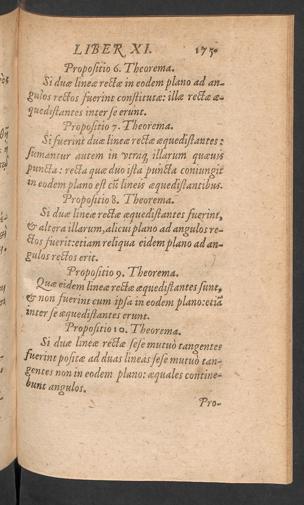 LIBER XI. 175.
Propositio 6. Theorema.
Si duæ lineæ rectæ in eodem plano ad an-
gulos rectos fuerint constitutæ: illæ rectæ æ-
quedistantes inter se erunt.
Propositio 7. Theorema.
Si fuerint duæ lineæ rectæ æquedistantes:
sumantur autem in vtraq; illarum quæuis
puncta: recta quæ duo ista puncta coniungit
in eodem plano est cū lineis æquedistantibus.
Propositio 8. Theorema.
Si duæ lineæ rectæ æquedistantes fuerint,
& altera illarum, alicui plano ad angulos re-
ctos fuerit: etiam reliqua eidem plano ad an-
gulos rectos erit.
Propositio 9. Theorema.
Quæ eidem lineæ rectæ æquedistantes sunt,
& non fuerint cum ipsa in eodem plano: etiā
inter se æquedistantes erunt.
Propositio 10. Theorema.
Si duæ lineæ rectæ sese mutuò tangentes
fuerint positæ ad duas lineas sese mutuò tan-
gentes non in eodem plano: æquales contine-
bunt angulos.
Pro-